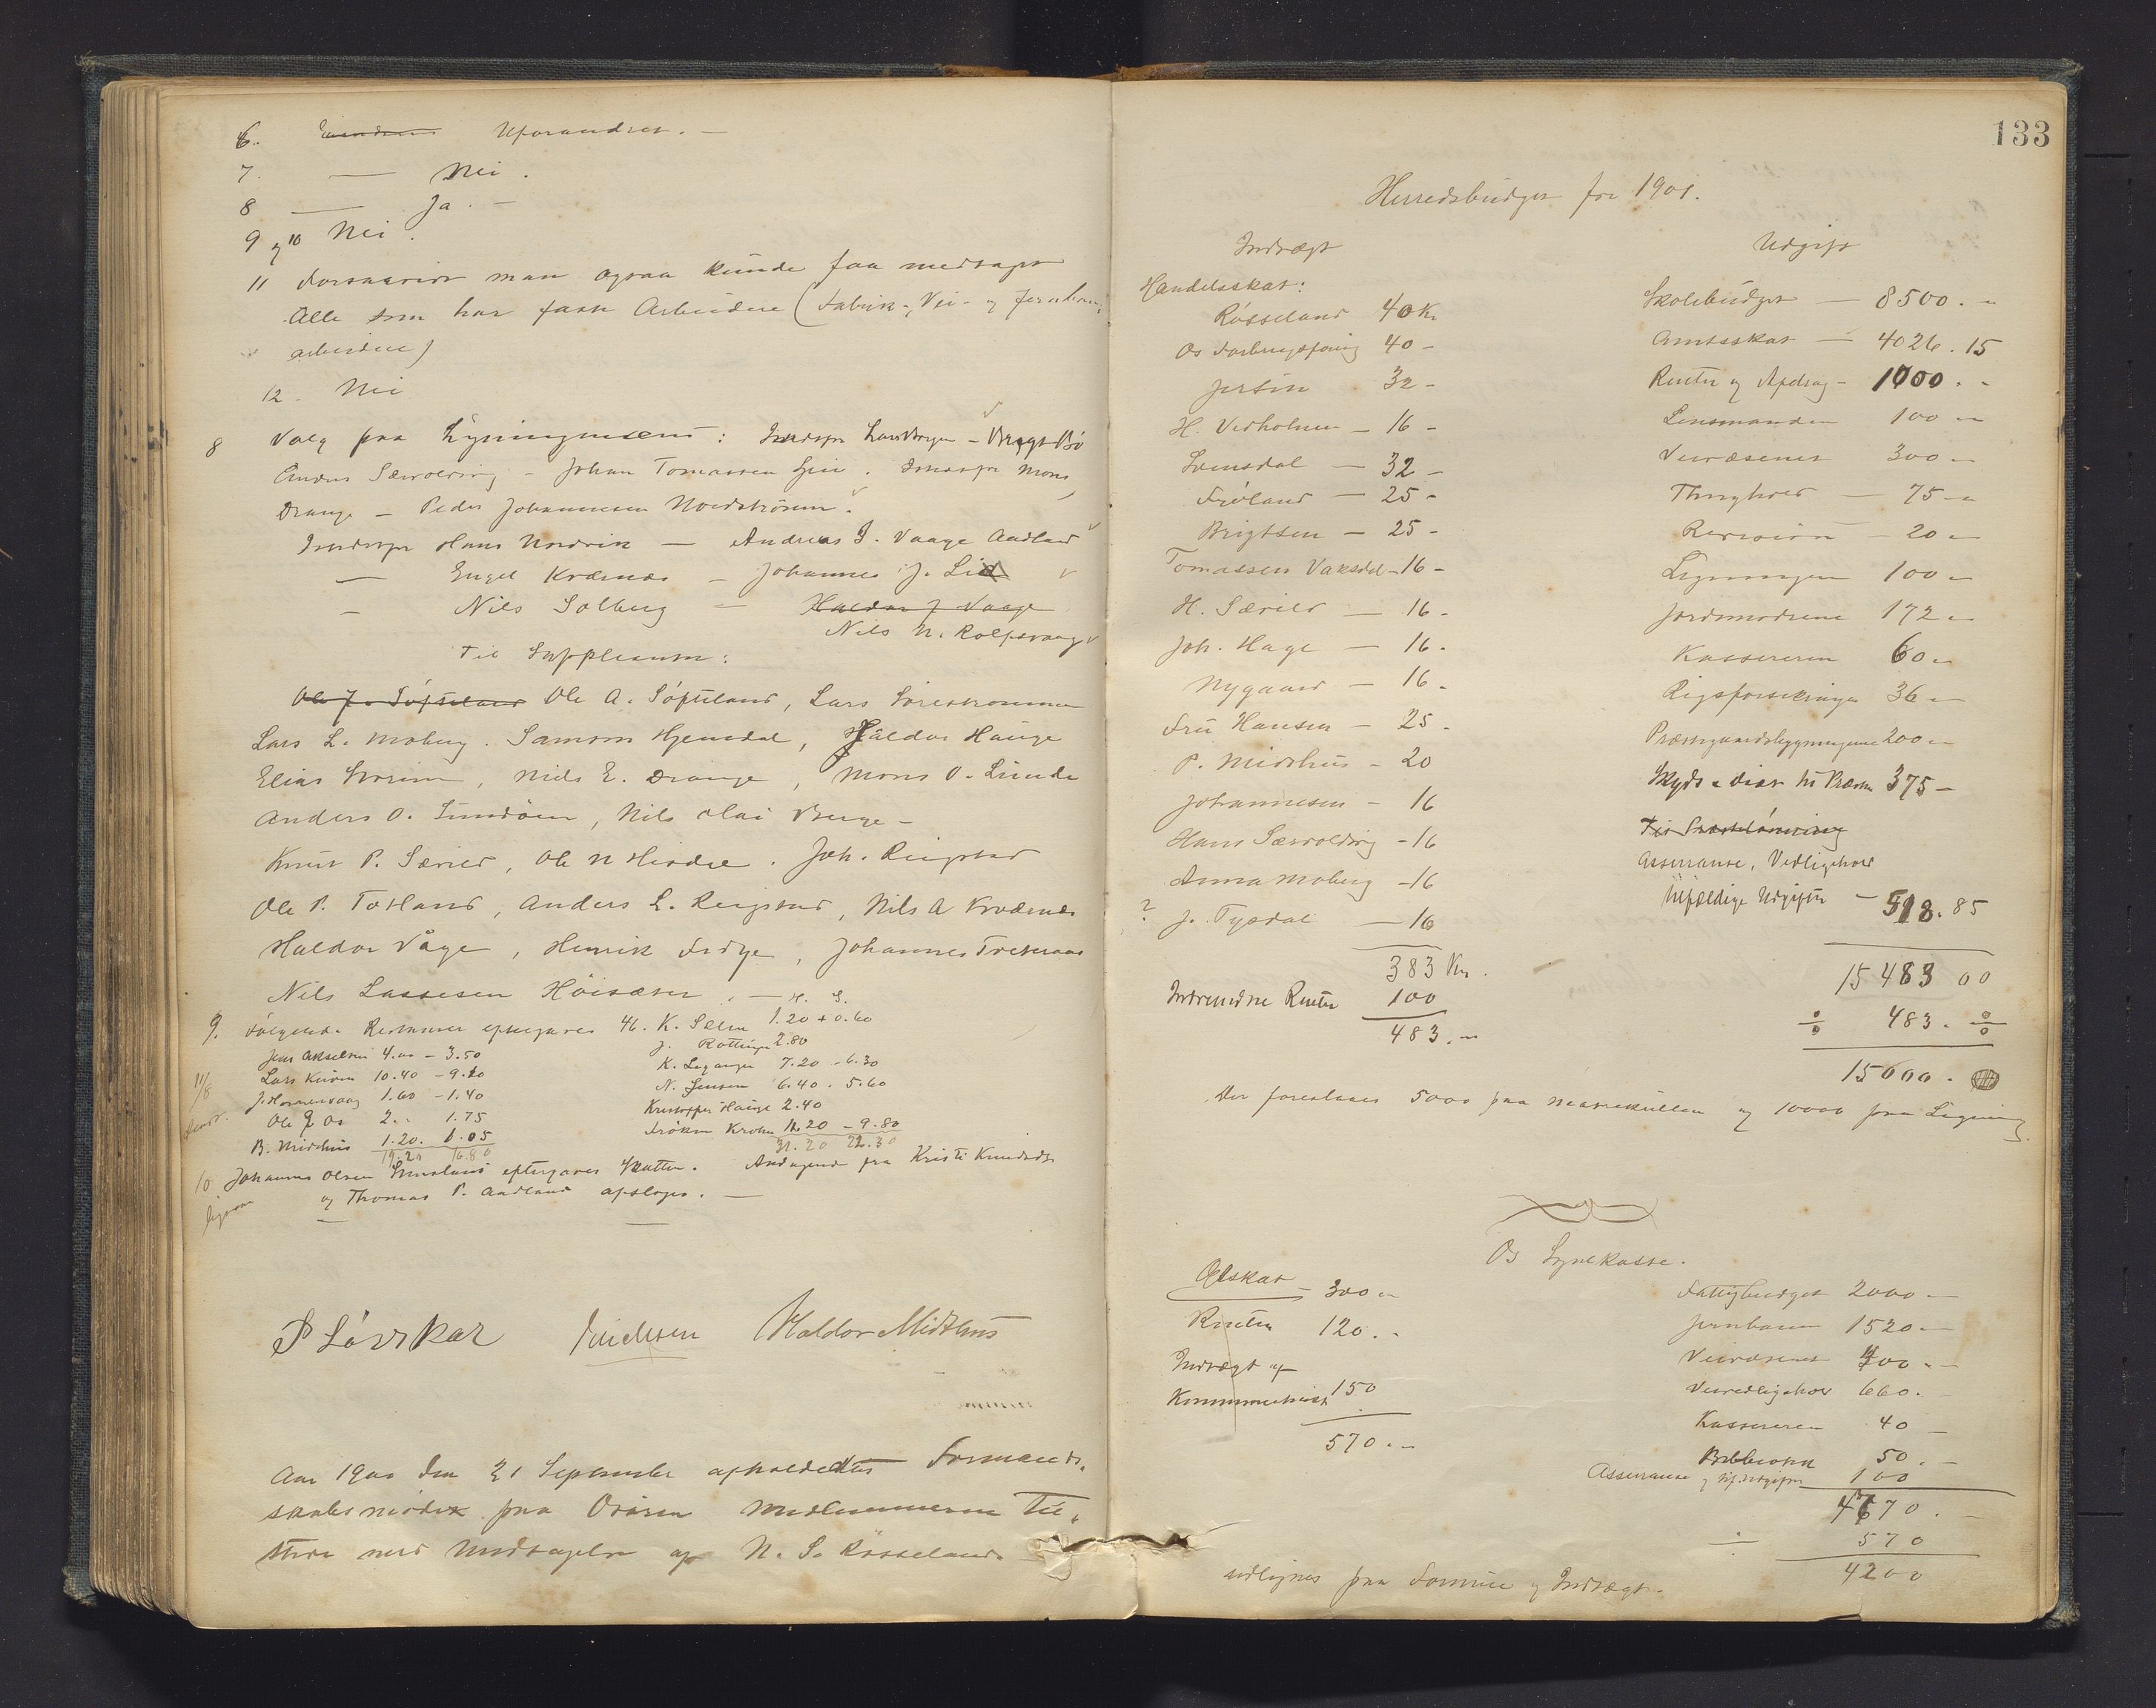 6. Uforandret. —
7. — Nei.
8 — Ja. —
9 og 10 Nei.
11 Forsaavidt man ogsaa kunde faa medtaget
Alle som har faste Arbeidere (Fabrik-, Vei- og Jernbane-
arbeidere)
12. Nei
8 Valg paa Ligningsmænd: Lars Borgen – Brigt Bø
Anders Særvolding – Johan Tomassen Mons
Drange – Peder Johannessen Nordstrønen.
Hans Undrin — Andreas J. Vaage Aadland
— Engel Kvernes – Johannes J. Lid
– Nils Solberg — Haldor J Vaage
Nils N. Rolfsvaag
Til Suppleanter:
Ole J. Søfteland Ole A. Søfteland, Lars Sørestrømmen
Lars L. Moberg. Samson Hjemdal, Haldor Hauge
Elias , Nils E. Drange, Mons O. Lunde
Anders O. Sundøen, Nils Olai Berge –
Knut P. Særvld, Ole N Hisdal. Joh. Reigstad
Ole P. Tøsland, Anders L. Reigstad, Nils A Kvernes
Haldor Våge, Henrik Frøtje, Johannes Tveteraas
Nils Lassesen Høisæter. — H. S.
9. Følgende Restancer eftergaves 46. K. Selm 1.20 + 0.60
Jens Akselsen 4.00 – 3.50 J. Røttingen 2.80
11/8 Lars Kuven 10.40 – 9.10 K. Leganger 7.20 – 6.30
J. Hornervaag 1.60 – 1.40 N. Jensen 6.40. 5.60
Ole J Os 2.– 1.75 Kristoffer Hauge 2.40
B. Midthus 1.20. 1.05 Frøken Krohn 11.20 – 9.80
19.20 16.80 31.20 22.30
10 Johannes Olsen eftergaves Skatten. Andragende fra Kristi Knudsdtr
og Thomas P. Aadland afsloges. —
P Løvskar Haldor Midthus
Aar 1900 den 21 September afholdtes Formand-
skabsmøde paa Osøren Medlemmerne til-
stede med Undtagelse af N. S. Røsseland
133
Herredsbudget for 1901.
Indtægt Udgift
Handelsskat:
Røsseland 40 Kr
Os Forbrugsforing 40 –
Jersin 32 –
H. Vedholmen – 16 –
Svensdal — 32 –
Frøland — 25 –
Brigtsen — 25 –
Tomassen Vaksdal – 16 –
H. Særvld — 16 –
Joh. Hage — 16.
Nygaard — 16 –
Fru Hansen — 25 –
P. Midthus – 20
Johannesen – 16
Hans Særvolding – 16
Anna Moberg – 16
? J. Tysdal — 16
383 Kr.
Indvundne Renter 100
483.–
Skolebudget — 8500.–
Amtsskat — 4026.15
Renter og Afdrag – 1000.–
Lensmanden 100 –
Veivæsenet 300 –
Thinghold — 75 –
Revision — 20 –
Ligningen 100 –
Jordmødrene 172 –
Kassereren 60 –
Rigsforsikringen 36 –
Præstegaardsbygningene 200 –
Skyds & Diæt til Præsten 375 –
Assurance, Vedligehold
tilfældige Udgifter — 518.85
15 483 00
÷ 483. ÷
15000.
Der foreslaaes 5000 paa Matrikullen og 10000 paa Ligning.
Os Sognekasse.
Ølskat – 300 –
Renter 120.–
Indtægt af
Kommunehuset 150
570.–
Fattigbudget 2000 –
Jernbanen 1520 –
Veivæsenet 400 –
Veivedligehold 660.–
Kassereren 40 –
Bibliothek 50.–
Assurance og tilf. Udgifter 100
4770.–
÷ 570
4200
udlignes paa Formue og Indtægt.